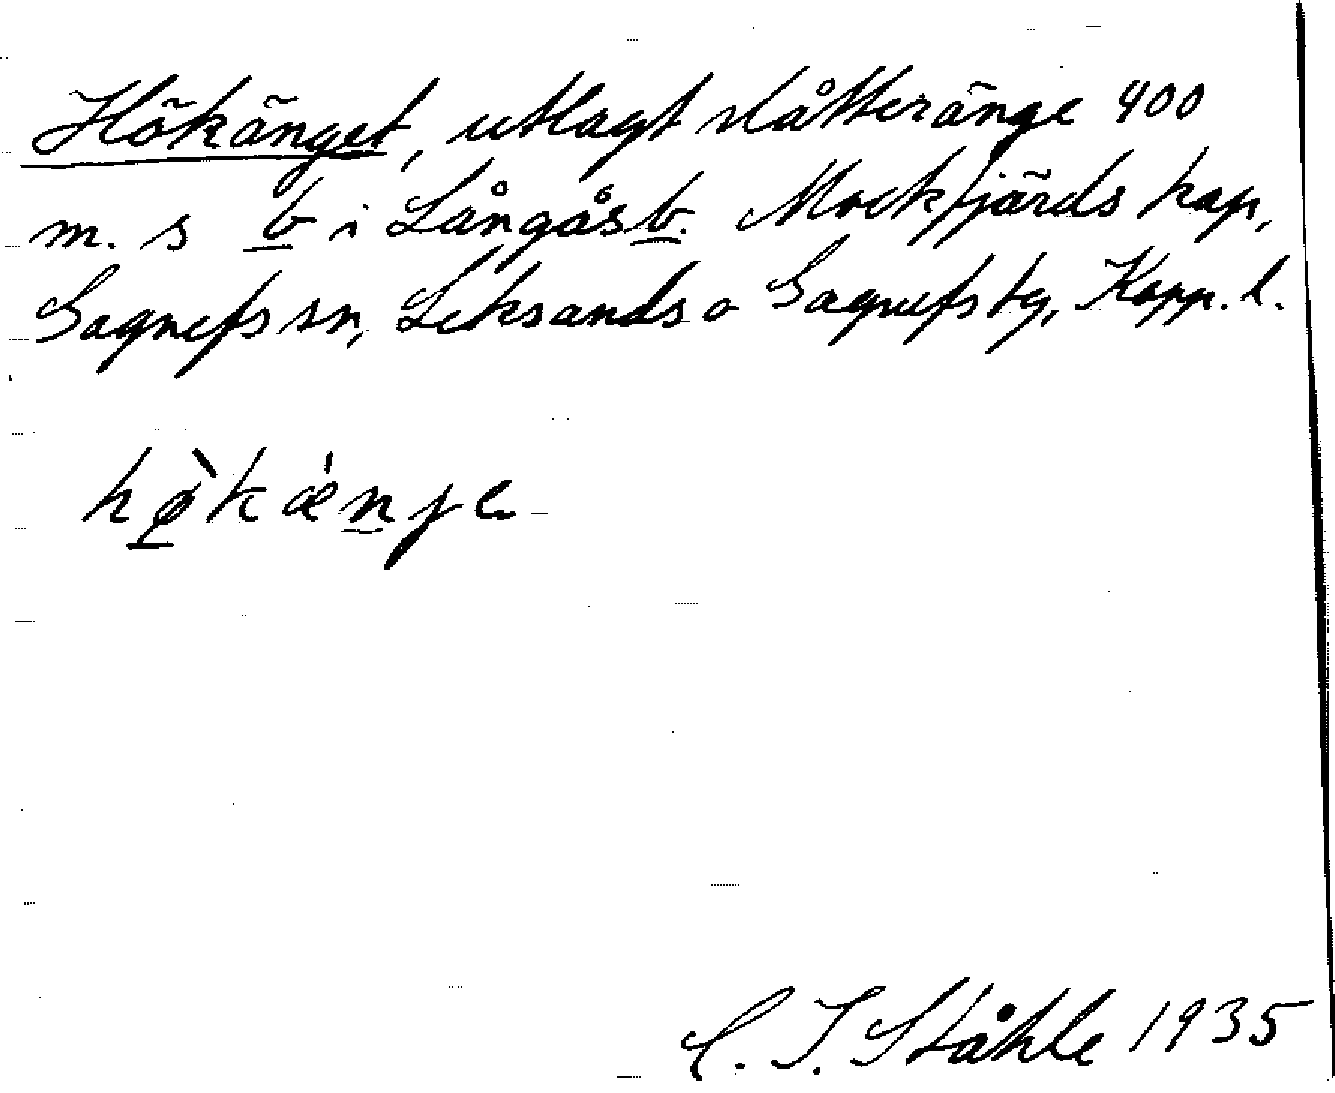 Hökänget, utlagt slåtteränge 400
m. s b i Långåsb. Mockfjärds kap,
Gagnefs sn, Leksands o Gagnefs tg, Kopp. l.
hø̀kæ̀nje
C. I. Ståhle 1935